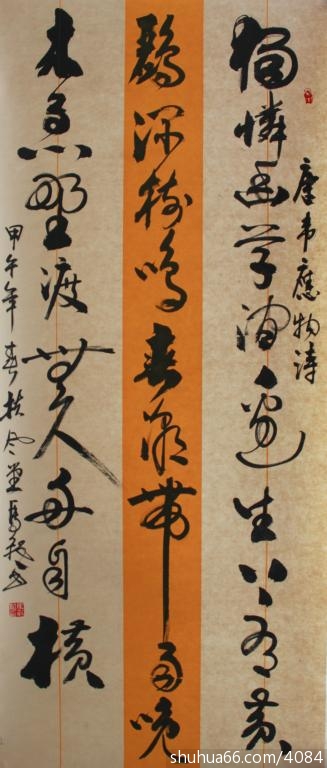 唐韋應物詩
獨憐幽草澗邊生上有黃
鸝深樹鳴春潮帶雨晚
來急野渡無人舟自橫
甲午年春
shuhua66.com/4084